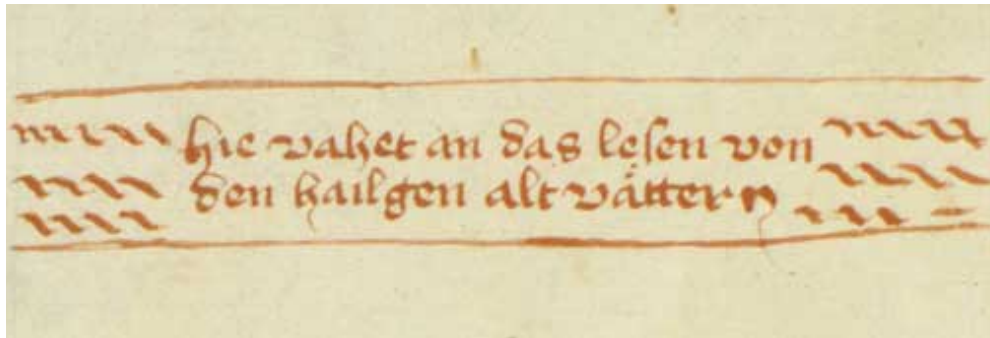 hie vahet an das lesen von
den hailgen alt vättern